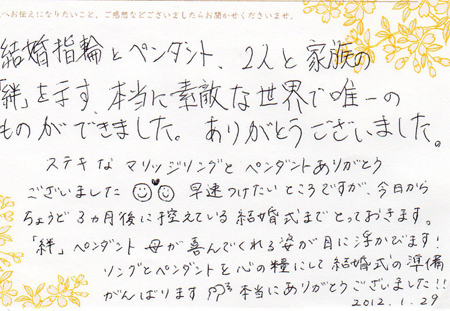 へお伝えになりたいこと、ご感想などございましたらお聞かせくださいませ。
結婚指輪とペンダント、2人と家族の
「絆」を示す、本当に素敵な世界で唯一の
ものができました。ありがとうございました。
ステキなマリッジリングとペンダントありがとう
ございました 早速つけたいところですが、今日から
ちょうど3ヵ月後に控えている結婚式までとっておきます。
「絆」ペンダント 母が喜んでくれる姿が目に浮かびます!
リングとペンダントを心の糧にして結婚式の準備
がんばります 本当にありがとうございました!!
2012.1.29